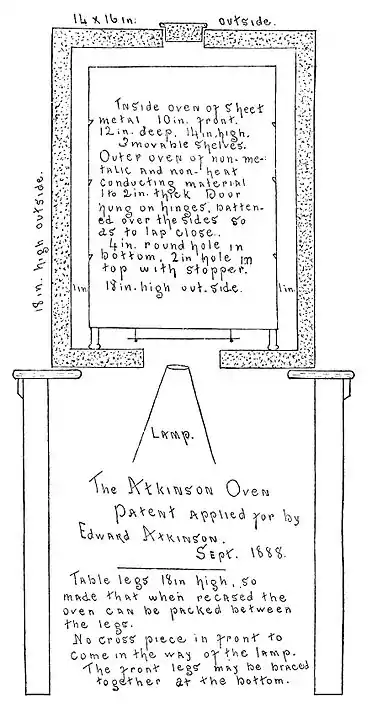 14 x 16 in. outside.
18 in. high outside.
Inside oven of sheet
metal 10in. front.
12in. deep, 14in. high.
3 movable shelves.
Outer oven of non-me-
talic and non-heat
conducting material
1 to 2in. thick Door
hung on hinges, batten-
ed over the sides so
as to lap close.
4in. round hole in
bottom, 2in hole in
top with stopper.
18in. high out. side.
1in.
1in.
Lamp.
The Atkinson Oven
Patent applied for by
Edward Atkinson.
Sept. 1888.
Table legs 18in high, so
made that when recased the
oven can be packed between
the legs.
No cross piece in front to
come in the way of the lamp.
The front legs may be braced
together at the bottom.